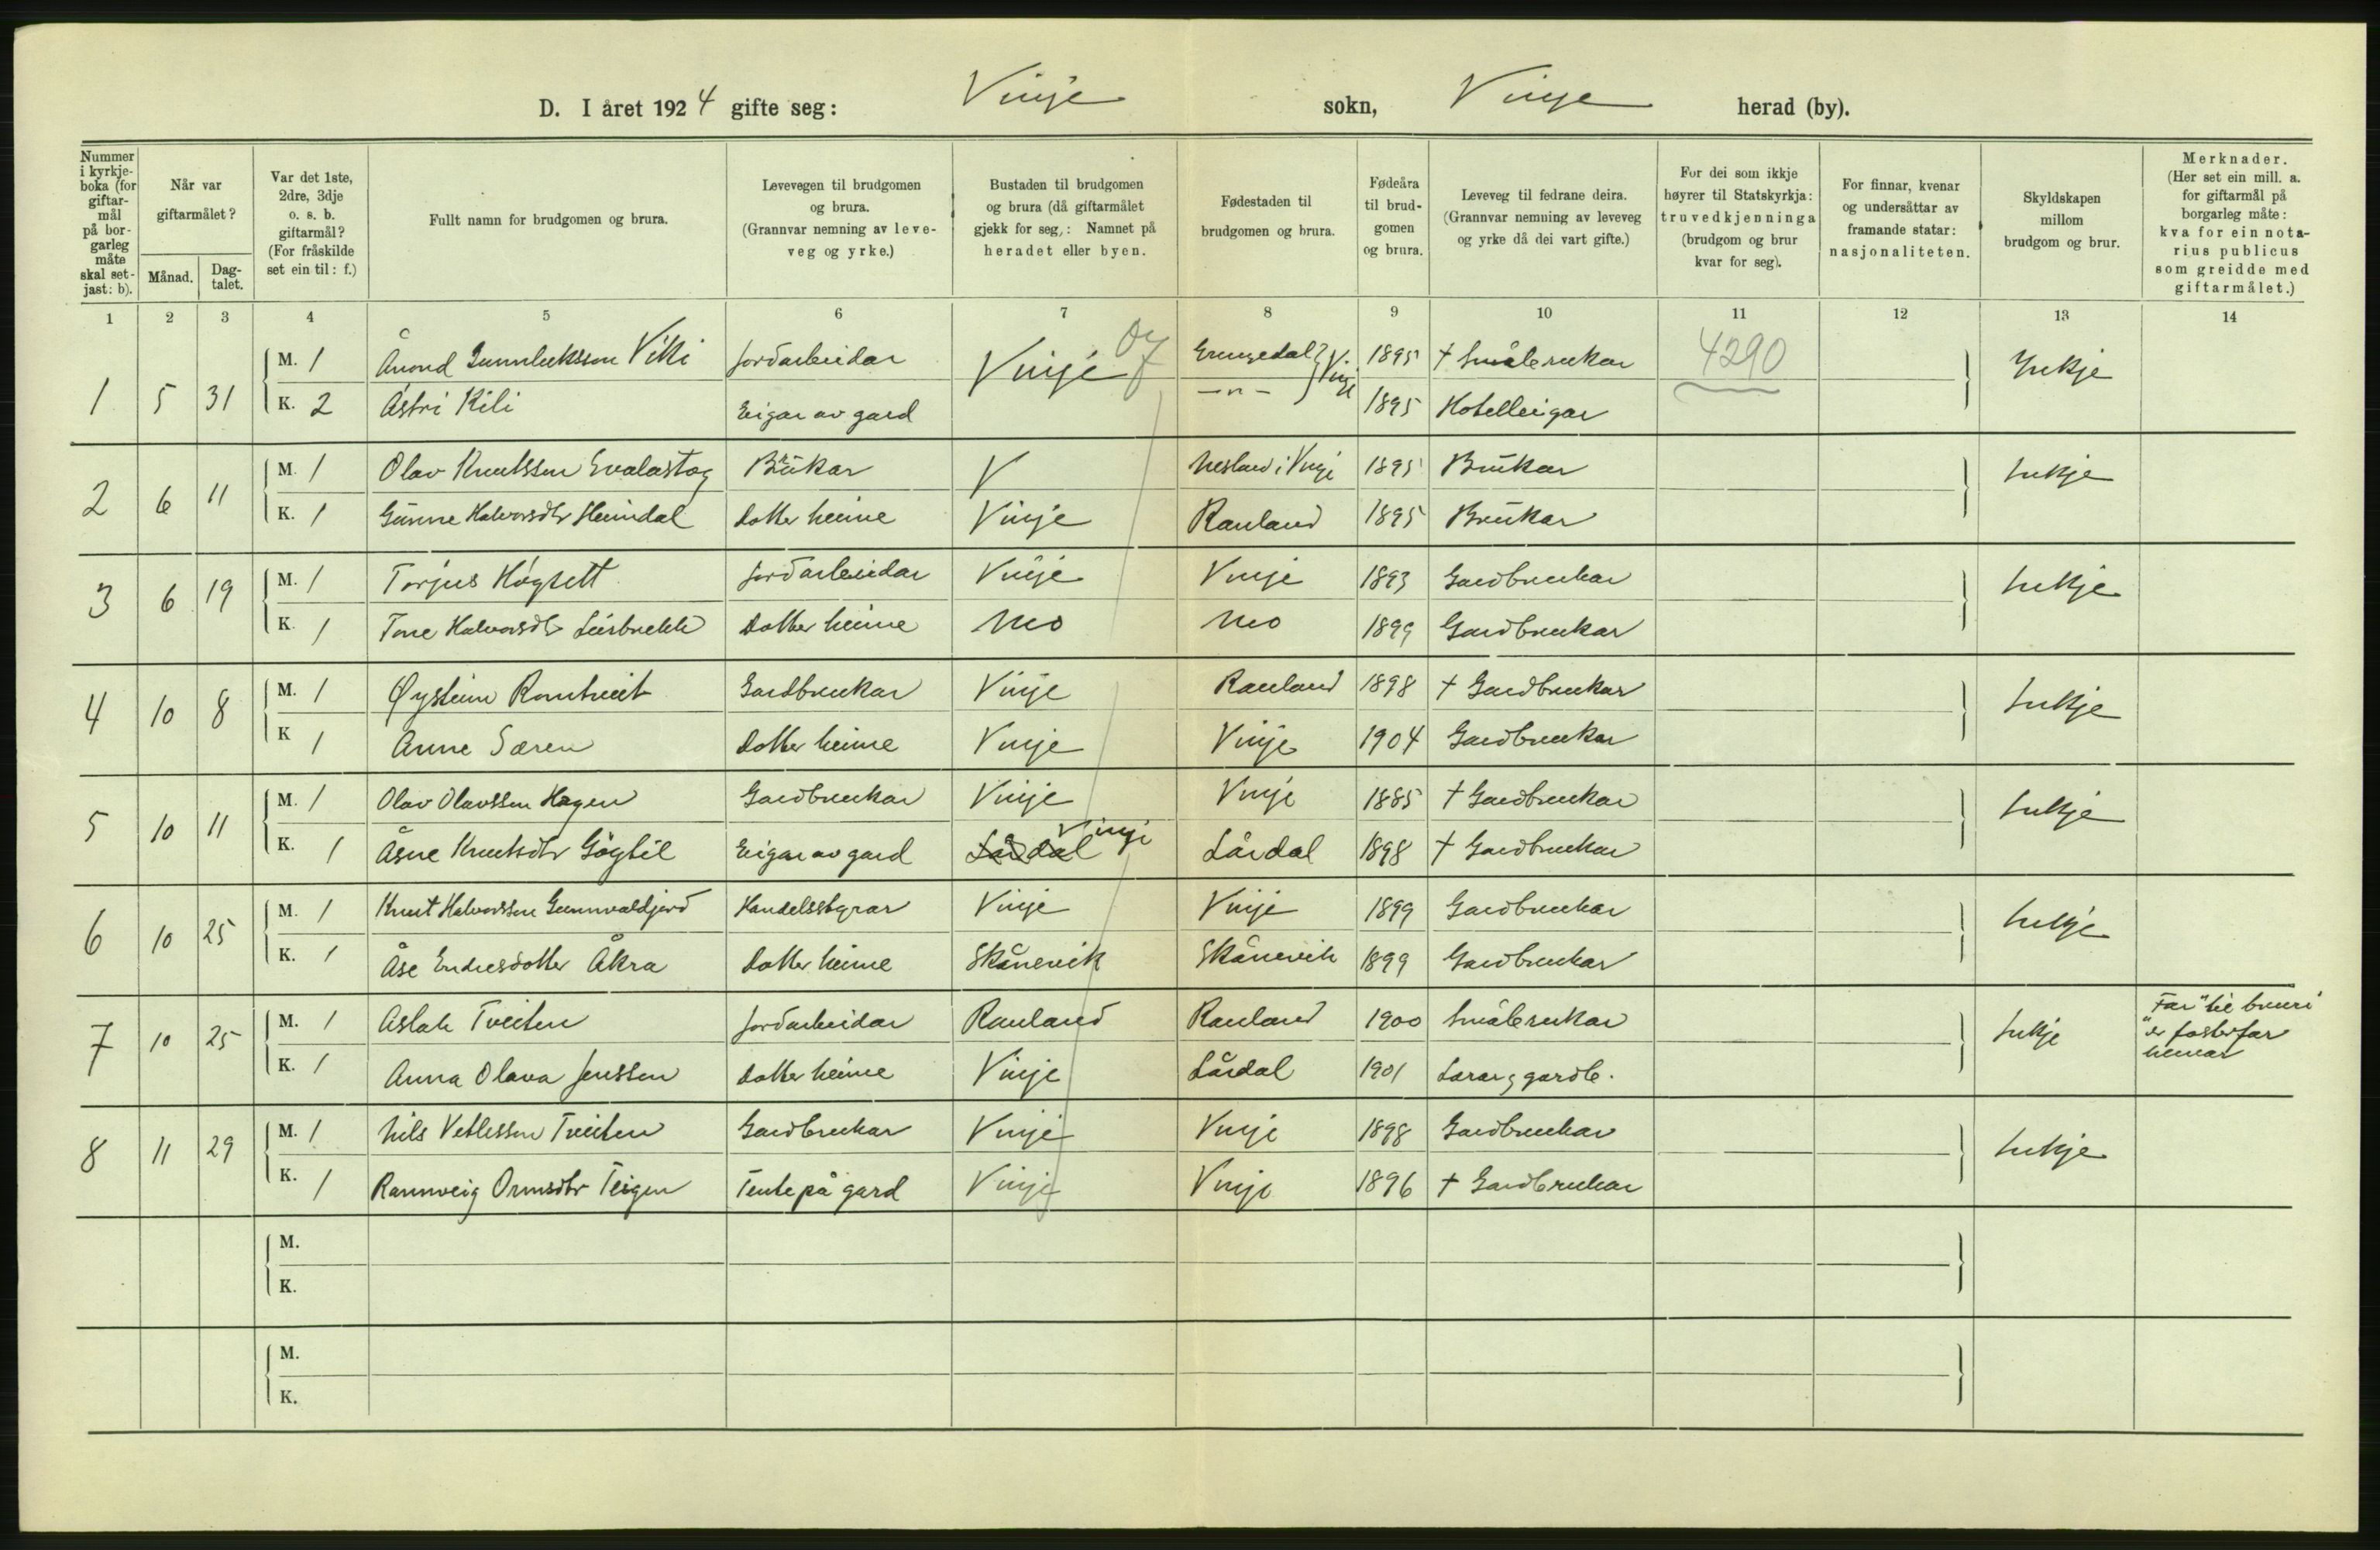 D. I året 1924 gifte seg: Vinje sokn, Vinje herad (by).
Nummer i kyrkje-boka (for giftar-mål på bor-garleg måte skal set-jast: b).
Når var giftarmålet?
Månad.
Dag-talet.
Var det 1ste, 2dre, 3dje o. s. b. giftarmål? (For fråskilde set ein til: f.)
Fullt namn for brudgomen og brura.
Levevegen til brudgomen og brura. (Grannvar nemning av leve-veg og yrke.)
Bustaden til brudgomen og brura (då giftarmålet gjekk for seg,: Namnet på heradet eller byen.
Fødestaden til brudgomen og brura.
Fødeåra til brud-gomen og brura.
Leveveg til fedrane deira. (Grannvar nemning av leveveg og yrke då dei vart gifte.)
For dei som ikkje høyrer til Statskyrkja: truvedkjenninga (brudgom og brur kvar for seg).
For finnar, kvenar og undersåttar av framande statar: nasjonaliteten.
Skyldskapen millom brudgom og brur.
Merknader. (Her set ein mill. a. for giftarmål på borgarleg måte: kva for ein nota-rius publicus som greidde med giftarmålet.)
1 2 3 4 5 6 7 8 9 10 11 12 13 14
1 5 31 M. 1 Ånond Gunnleiksson Viki Jordarbeidar Vinje Grungedal } Vinje 1895 † Småbrukar 4290 Inkje
K. 2 Åstri Kili Eigar av gard —"— 1895 Hotelleigar
2 6 11 M. 1 Olav Knutsson Evalastog Brukar V Nesland i Vinje 1895 Brukar Inkje
K. 1 Gunne Halvorsdtr Heimdal Dotter heime Vinje Rauland 1895 Brukar
3 6 19 M. 1 Torjus Høgsett Jordarbeidar Vinje Vinje 1893 Gardbrukar Inkje
K. 1 Tone Halvorsdtr Dotter heime Mo Mo 1899 Gardbrukar
4 10 8 M. 1 Øystein Romtveit Gardbrukar Vinje Rauland 1898 † Gardbrukar Inkje
K 1 Anne Særen Dotter heime Vinje Vinje 1904 Gardbrukar
5 10 11 M. 1 Olav Olavsson Hagen Gardbrukar Vinje Vinje 1885 † Gardbrukar Inkje
K. 1 Åsne Knutsdtr Eigar av gard Lårdal Vinje Lårdal 1898 † Gardbrukar
6 10 25 M. 1 Knut Halvorsson Gunnvaldjord Handelsstyrar Vinje Vinje 1899 Gardbrukar Inkje
K. 1 Åse Endresdotter Åkra Dotter heime Skånevik Skånevik 1899 Gardbrukar
7 10 25 M. 1 Aslak Tveiten Jordarbeidar Rauland Rauland 1900 Småbrukar Inkje "Far" til bruri
"er fosterfar
hennar
K. 1 Anna Olava Jenssen Dotter heime Vinje Lårdal 1901 Lærar, gardb.
8 11 29 M. 1 Nils Vetlesson Tveiten Gardbrukar Vinje Vinje 1898 Gardbrukar Inkje
K. 1 Rannveig Ormsdtr Teigen Tente på gard Vinje Vinje 1896 † Gardbrukar
M.
K.
M.
K.